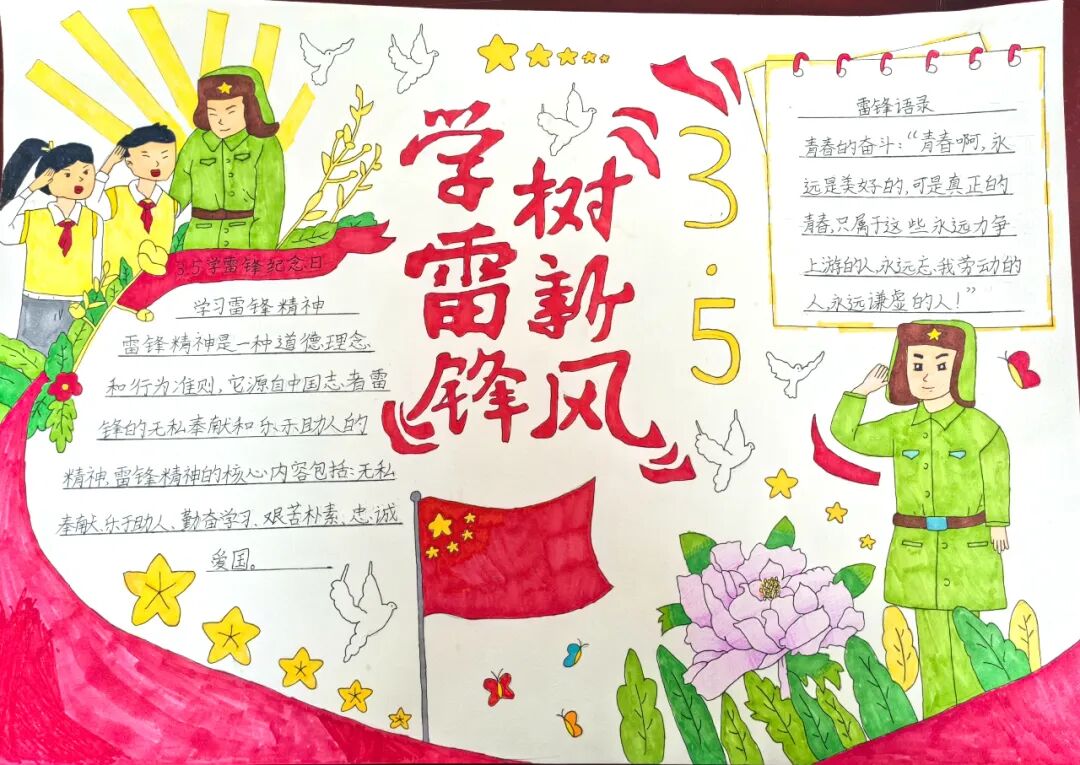 学雷锋
树新风
3.5
3.5学雷锋纪念日
学习雷锋精神
雷锋精神是一种道德理念
和行为准则,它源自中国志者雷
锋的无私奉献和乐于助人的
精神,雷锋精神的核心内容包括:无私
奉献、乐于助人、勤奋学习、艰苦朴素、忠诚
爱国。
雷锋语录
青春的奋斗:“青春啊,永
远是美好的,可是真正的
青春,只属于这些永远力争
上游的人,永远忘我劳动的
人,永远谦虚的人!”